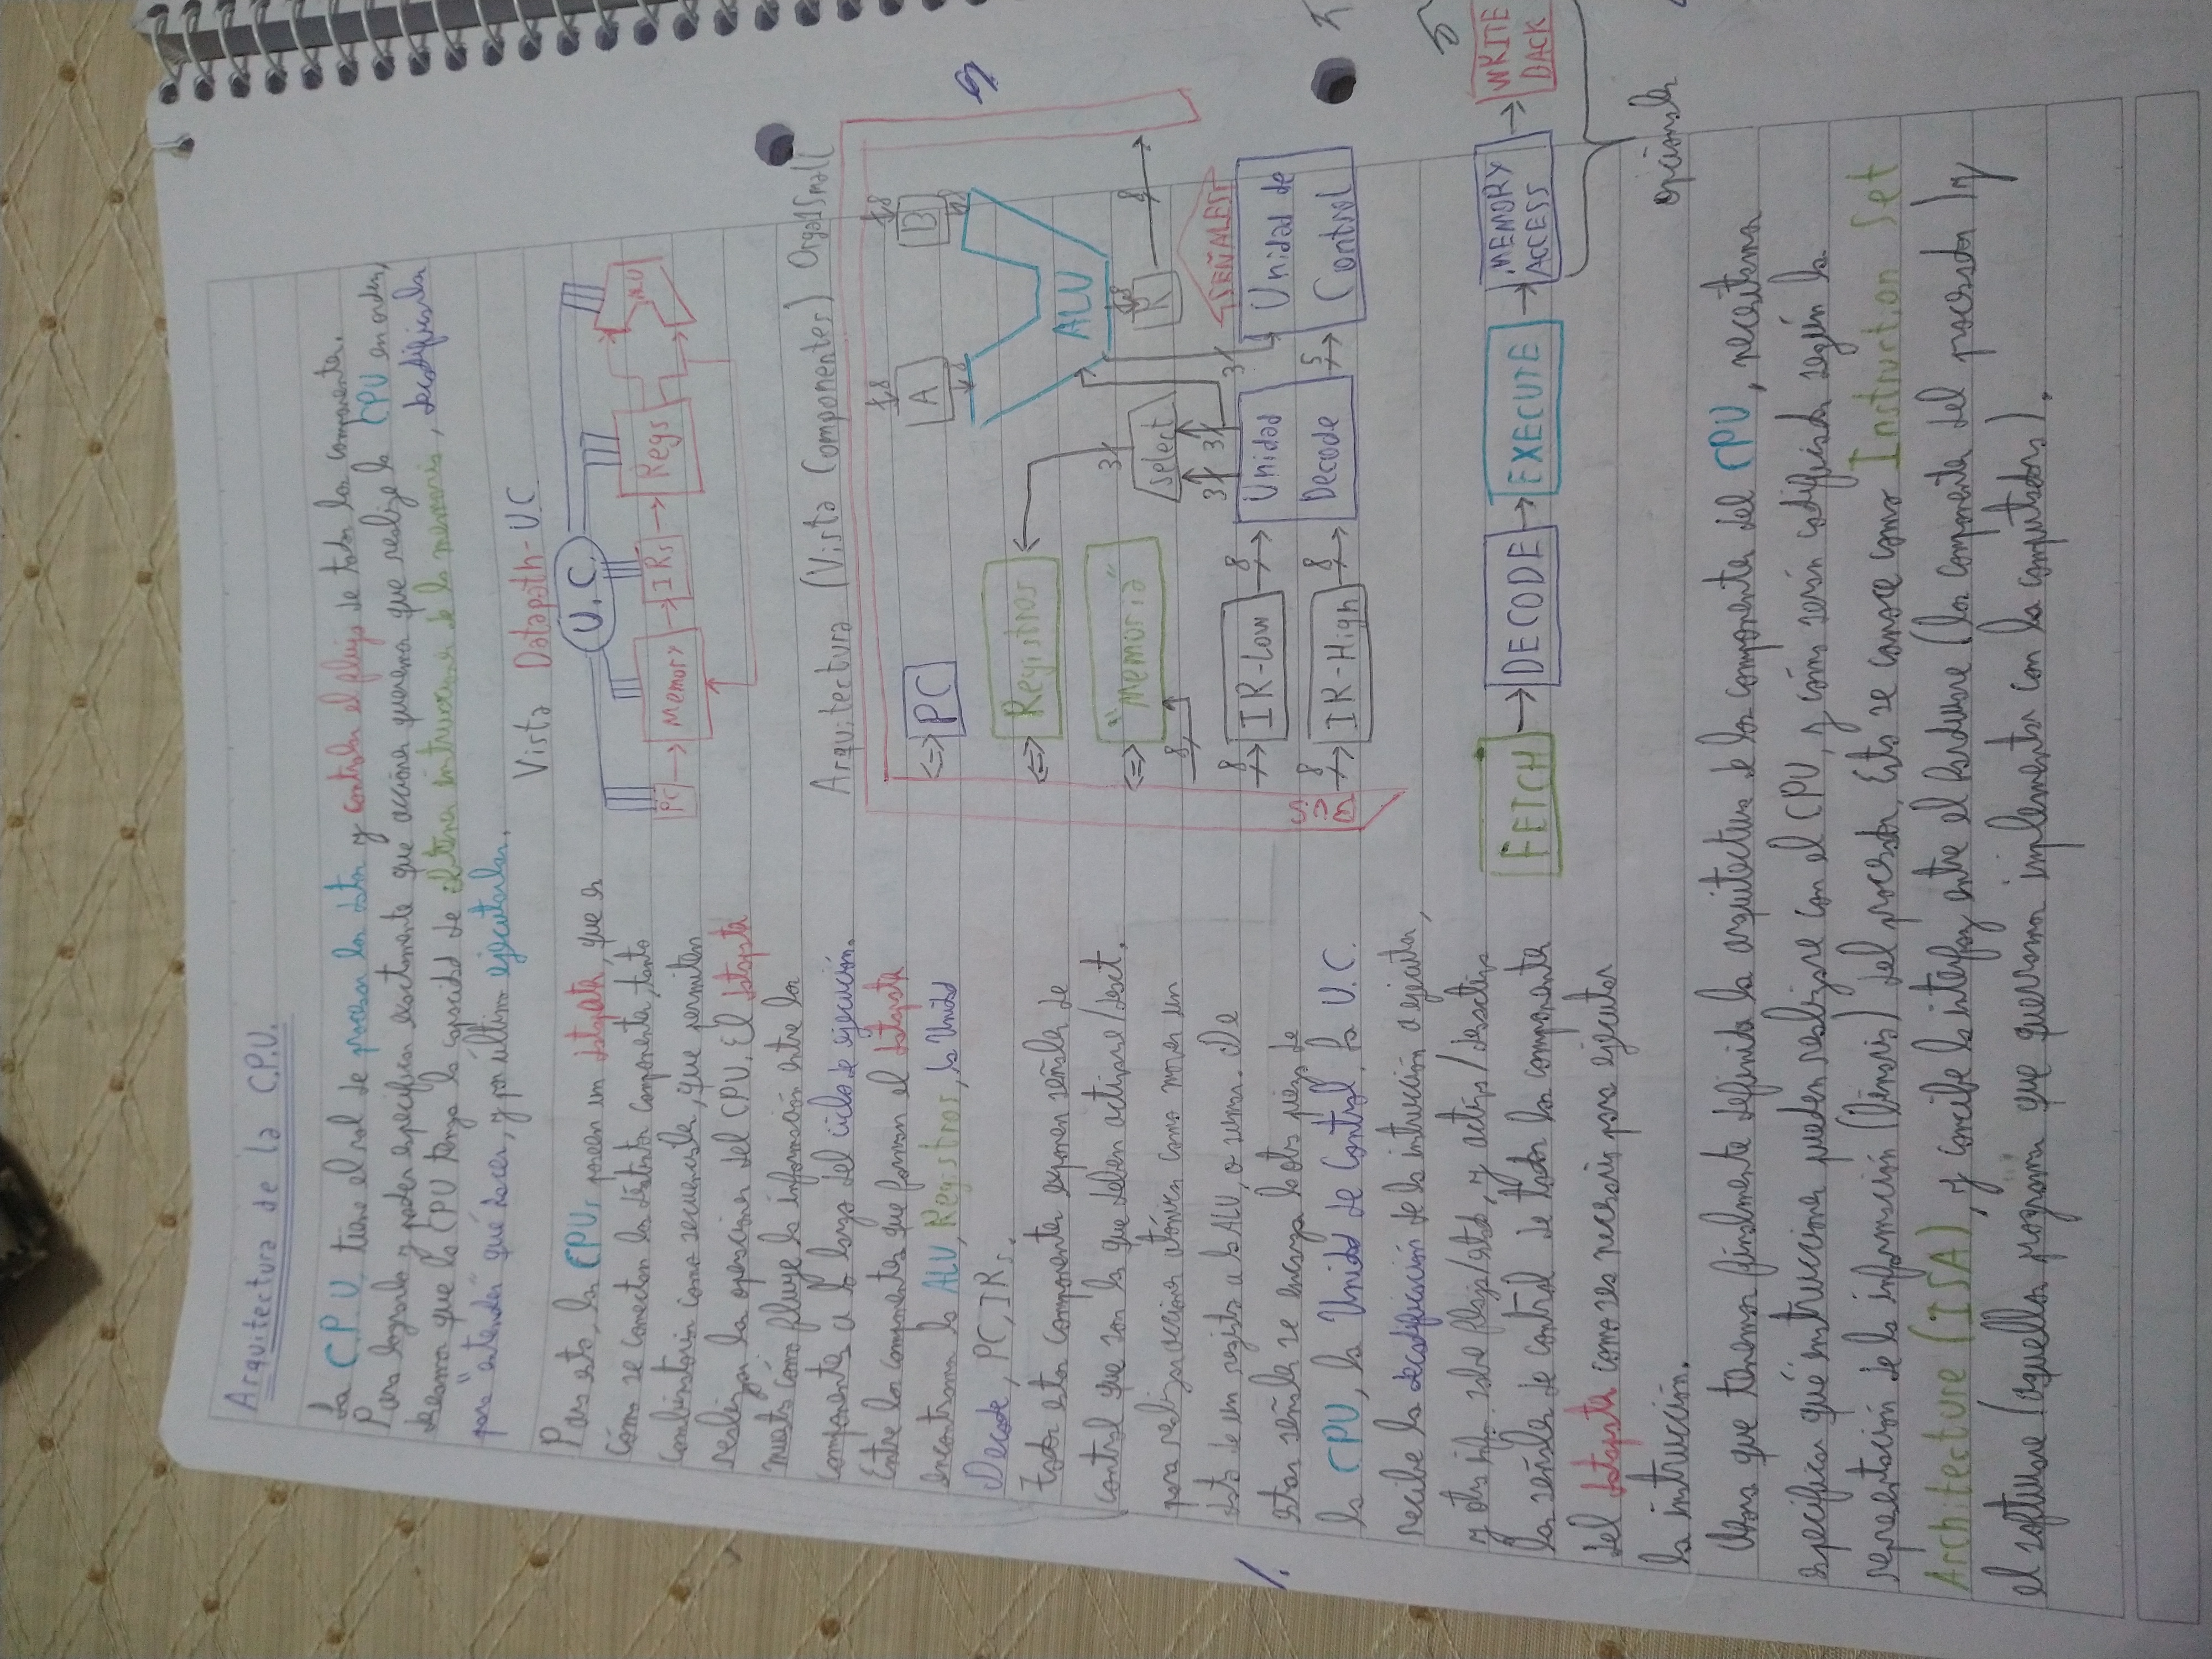 Arquitectura de la C.P.U.
La C.P.U. tiene el rol de procesar los datos y controlar el flujo de todos los componentes.
Para lograrlo y poder especificar exactamente que acciones queremos que realize la CPU en orden,
desemos que la CPU tenga la capacidad de obtener instrucciones de la memoria, decodificarlas
para "entender" qué hacer, y por último ejecutarlas.
Vista Datapath-U.C
Para esto, las CPUs poseen un datapath, que es
cómo se conectan los distintos componentes, tanto
combinatorios como secuenciales, que permiten
realizar las operaciones del CPU. El datapath
muestra cómo fluye la información entre los
componentes a lo largo del ciclo de ejecución.
Entre los componentes que forman el datapath
encontramos la ALU, Registros, la Unidad
Decode, PC, IRs.
Todos estos componentes exponen señales de
control que son las que deben activarse/desact.
para realizar acciones atómicas como mover un
dato de un registro a la ALU, o sumar. De
estas señales se encarga la otra pieza de
la CPU, la Unidad de Control. La U.C.
recibe la decodificación de la intrucción a ejecutar,
y otra inf. sobre flags/estado, y activa/desactiva
las señales de control de todos los componentes
del datapath como sea necesario para ejecutar
la instrucción.
U.C.
PC
Memory
IRs
Regs
ALU
Arquitectura (Vista Componentes) Orga1Small
8
8
PC
A
B
8
8
Registros
ALU
"Memoria"
3
8
select
R
8
8
3
3
3
SEÑALES
8
IR-Low
8
Unidad
Decode
Unidad de
Control
BUS
8
IR-High
8
5
FETCH
DECODE
EXECUTE
MEMORY
ACCESS
WRITE
BACK
opcionales
Ahora que tenemos finalmente definida la arquitectura de los componentes del CPU, necesitamos
especificar qué instrucciones pueden realizarse con el CPU, y cómo serán codificadas según la
representación de la información (binaria) del procesador. Esto se conoce como Instruction Set
Architecture (ISA), y concibe la interfaz entre el hardware (los componentes del procesador) y
el software (aquellos programas que querramos implementar con la computadora).